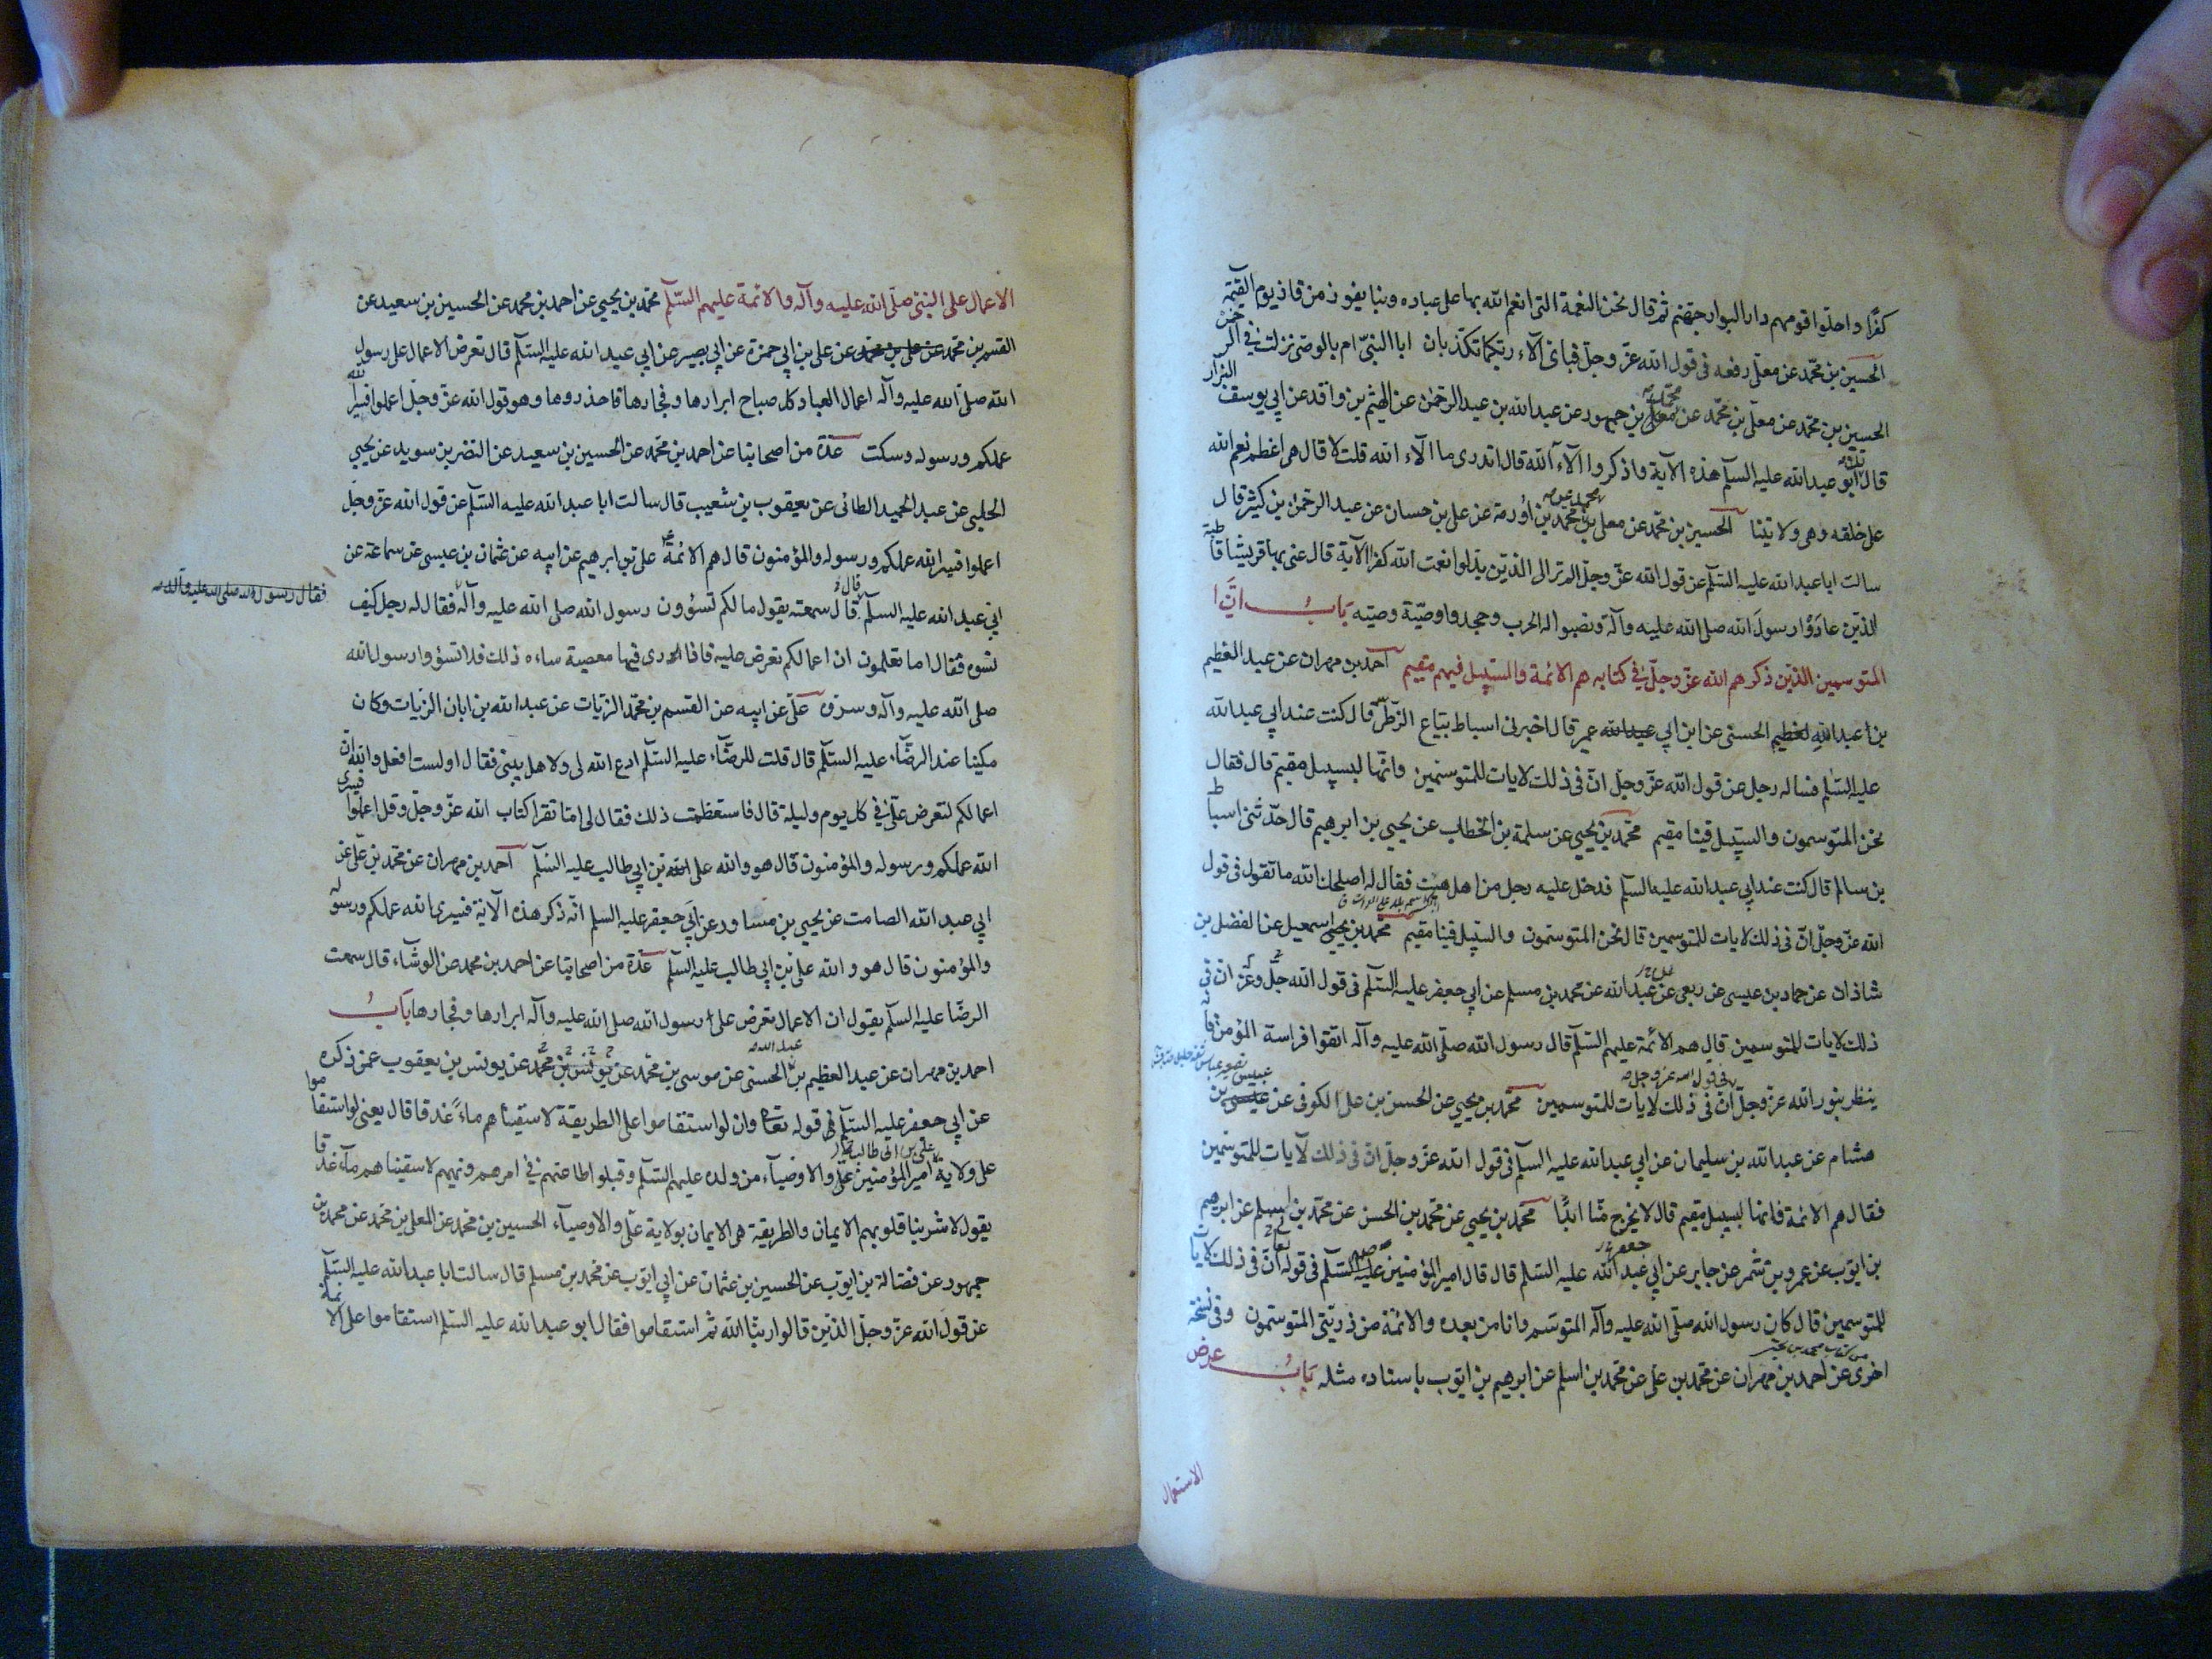 كفرًا واحلّوا قومهم دار البوار جهنم ثم قال نحن النعمة التى انعم الله بها على عباده وبنا يفوز من فاز يوم القيمة
الحسين بن محمّد عن معلّى رفعه فى قول الله عزّ وجلّ فباى آلاء ربكما تكذبان ابا النبىّ ام بالوصى نزلت فى الرحمن
الحسين بن محمّد عن معلّى بن محمّد عن محمد بن جمهور عن عبد الله بن عبد الرحمن عن الهيثم بن واقد عن ابى يوسف البزاز
قال تلا ابو عبد الله عليه السلم هذه الآية واذكروا آلاء الله قال اتدرى ما آلاء الله قلت لا قال هى اعظم نعم الله
على خلقه وهى ولايتنا الحسين بن محمّد عن معلى بن محمد عن محمّد بن اورمة عن على بن حسان عن عبد الرحمن بن كثير قال
سالت ابا عبد الله عليه السّلم عن قول الله عزّ وجلّ الم تر الى الذين بدّلوا نعمت الله كفرا الآية قال عنى بها قريشا قاطبة
الذين عادوا رسول الله صلى الله عليه وآله ونصبوا له الحرب وجحدوا وصيّة وصيّه بابُ انّ ا
المتوسمين الذين ذكرهم الله عزّ وجلّ فى كتابه هم الائمة والسبيل فيهم مقيم احمد بن مهران عن عبد العظيم
بن عبد الله الحسنى عن ابن ابى عمير قال اخبرنى اسباط بيّاع الزطّى قال كنت عند ابى عبد الله
عليه السّلم فساله رجل عن قول الله عزّ وجلّ انّ فى ذلك لايات للمتوسّمين وانّها لبسبيل مقيم قال فقال
نحن المتوسمون والسبيل فينا مقيم محمّد بن يحيى عن سلمة بن الخطاب عن يحيى بن ابرهيم قال حدّثنى اسباط
بن سالم قال كنت عند ابى عبد الله عليه السلم فدخل عليه رجل من اهل هيت فقال له اصلحك الله ما تقول فى قول
الله عزّ وجلّ انّ فى ذلك لايات للمتوسمين قال نحن المتوسّمون والسبيل فينا مقيم محمد بن اسمعيل عن الفضل بن
شاذان عن حماد بن عيسى عن ربعى عن عبد الله عن محمد بن مسلم عن ابى جعفر عليه السّلم فى قول الله جلّ وعزّ انّ فى
ذلك لايات للمتوسمين قال هم الائمة عليهم السّلم قال رسول الله صلّى الله عليه وآله اتقوا فراسة المؤمن فانه
فى قول الله عز وجل
ينظر بنور الله عزّ وجلّ انّ فى ذلك لايات للمتوسمين محمّد بن يحيى عن الحسن بن على الكوفى عن عبيس بن
هشام عن عبد الله بن سليمان عن ابى عبد الله عليه السلم فى قول الله عزّ وجلّ انّ فى ذلك لآيات للمتوسّمين
فقال هم الائمة فانها لبسبيل مقيم قال لا يخرج منّا ابدًا محمّد بن يحيى عن محمّد بن الحسن عن محمّد بن اسلم عن ابرهيم
بن ايّوب عن عمرو بن شمر عن جابر عن ابى عبد الله عليه السّلم قال قال امير المؤمنين عليه السّلم فى قوله تعا انّ فى ذلك لايات
للمتوسمين قال كان رسول الله صلّى الله عليه وآله المتوسّم وانا من بعده والائمّة من ذريّتى المتوسّمون وفى نسخة
اخرى عن احمد بن مهران عن محمّد بن على عن محمّد بن اسلم عن ابرهيم بن ايّوب باسناده مثله بابُ عرض
الاعمال على النبىّ صلّى الله عليه وآله والائمة عليهم السّلم محمّد بن يحيى عن احمد بن محمد عن الحسين بن سعيد عن
القسم بن محمّد عن على بن ابى حمزة عن ابى بصير عن ابى عبد الله عليه السّلم قال تعرض الاعمال على رسول
الله صلّى الله عليه وآله اعمال العباد كل صباح ابرارها وفجارها فاحذروها وهو قول الله عزّ وجلّ اعملوا فسيرا الله
عملكم ورسوله وسكت عدّة من اصحابنا عن احمد بن محمّد عن الحسين بن سعيد عن النضر بن سويد عن يحيى
الحلبى عن عبد الحميد الطائى عن يعقوب بن شعيب قال سالت ابا عبد الله عليه السّلم عن قول الله عزّ وجلّ
اعملوا فسيرا الله عملكم ورسوله والمؤمنون قال هم الائمة على بن ابرهيم عن ابيه عن عثمان بن عيسى عن سماعة عن
ابى عبد الله عليه السّلم قال سمعته يقول ما لكم تسؤون رسول الله صلى الله عليه وآله فقال له رجل كيف
فقال رسول الله صلى الله عليه وآله
نسوه فقال اما تعلمون ان اعمالكم تعرض عليه فاذا راى فيها معصية ساءه ذلك فلا تسؤوا رسول الله
صلى الله عليه وآله وسرّوه علىّ عن ابيه عن القسم بن محمّد الزيّات عن عبد الله بن ابان الزيّات وكان
مكينا عند الرضّاء عليه السّلم قال قلت للرضّاء عليه السّلم ادع الله لى ولاهل بيتى فقال اولست افعل والله انّ
اعمالكم لتعرض علىّ فى كل يوم وليلة قال فاستعظمت ذلك فقال لى اما تقرا كتاب الله عزّ وجلّ وقل اعملوا فسيرى
الله عملكم ورسوله والمؤمنون قال هو والله على بن ابى طالب عليه السّلم احمد بن مهران عن محمّد بن علىّ عن
ابى عبد الله الصامت عن يحيى بن مساور عن ابى جعفر عليه السلم انّه ذكر هذه الآية فسيرى الله عملكم ورسوله
والمؤمنون قال هو والله علىّ بن ابى طالب عليه السّلم عدّة من اصحابنا عن احمد بن محمد عن الوشّاء قال سمعت
الرضّا عليه السلم يقول ان الاعمال تعرض على رسول الله صلى الله عليه وآله ابرارها وفجارها بابُ
احمد بن مهران عن عبد العظيم بن عبد الله الحسنى عن موسى بن محمّد عن يونس بن يعقوب عمّن ذكره
عن ابى جعفر عليه السّلم فى قوله تعا وان لو استقاموا على الطريقة لاسقيناهم ماءً غدقا قال يعنى لو استقاموا
على ولاية امير المؤمنين علىّ بن ابى طالب والاوصيآء من ولده عليهم السّلم وقبلوا طاعتهم فى امرهم ونهيهم لاسقيناهم مآء غدقا
يقول لاشربنا قلوبهم الايمان والطريقة هى الايمان بولاية علّى والاوصيآء الحسين بن محمد عن المعلى بن محمد عن محمد بن
جمهور عن فضالة بن ايوّب عن الحسين بن عثمان عن ابى ايّوب عن محمد بن مسلم قال سالت ابا عبد الله عليه السّلم
عن قول الله عزّ وجلّ الذين قالوا ربنّا الله ثم استقاموا فقال ابو عبد الله عليه السّلم استقاموا على الائمة